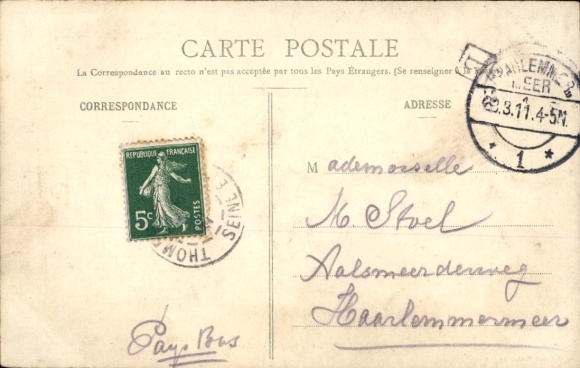 CARTE POSTALE
La Correspondance au recto n'est pas acceptée par tous les Pays Étrangers. (Se renseigner à la
CORRESPONDANCE
ADRESSE
HAARLEMMER
MEER
3.11.4-5N.
1
REPUBLIQUE FRANÇAISE
5c
POSTES
THOM
SEINE
Mademoiselle
M. Stoel
Aalsmeerderweg
Haarlemmermeer
Pays Bas